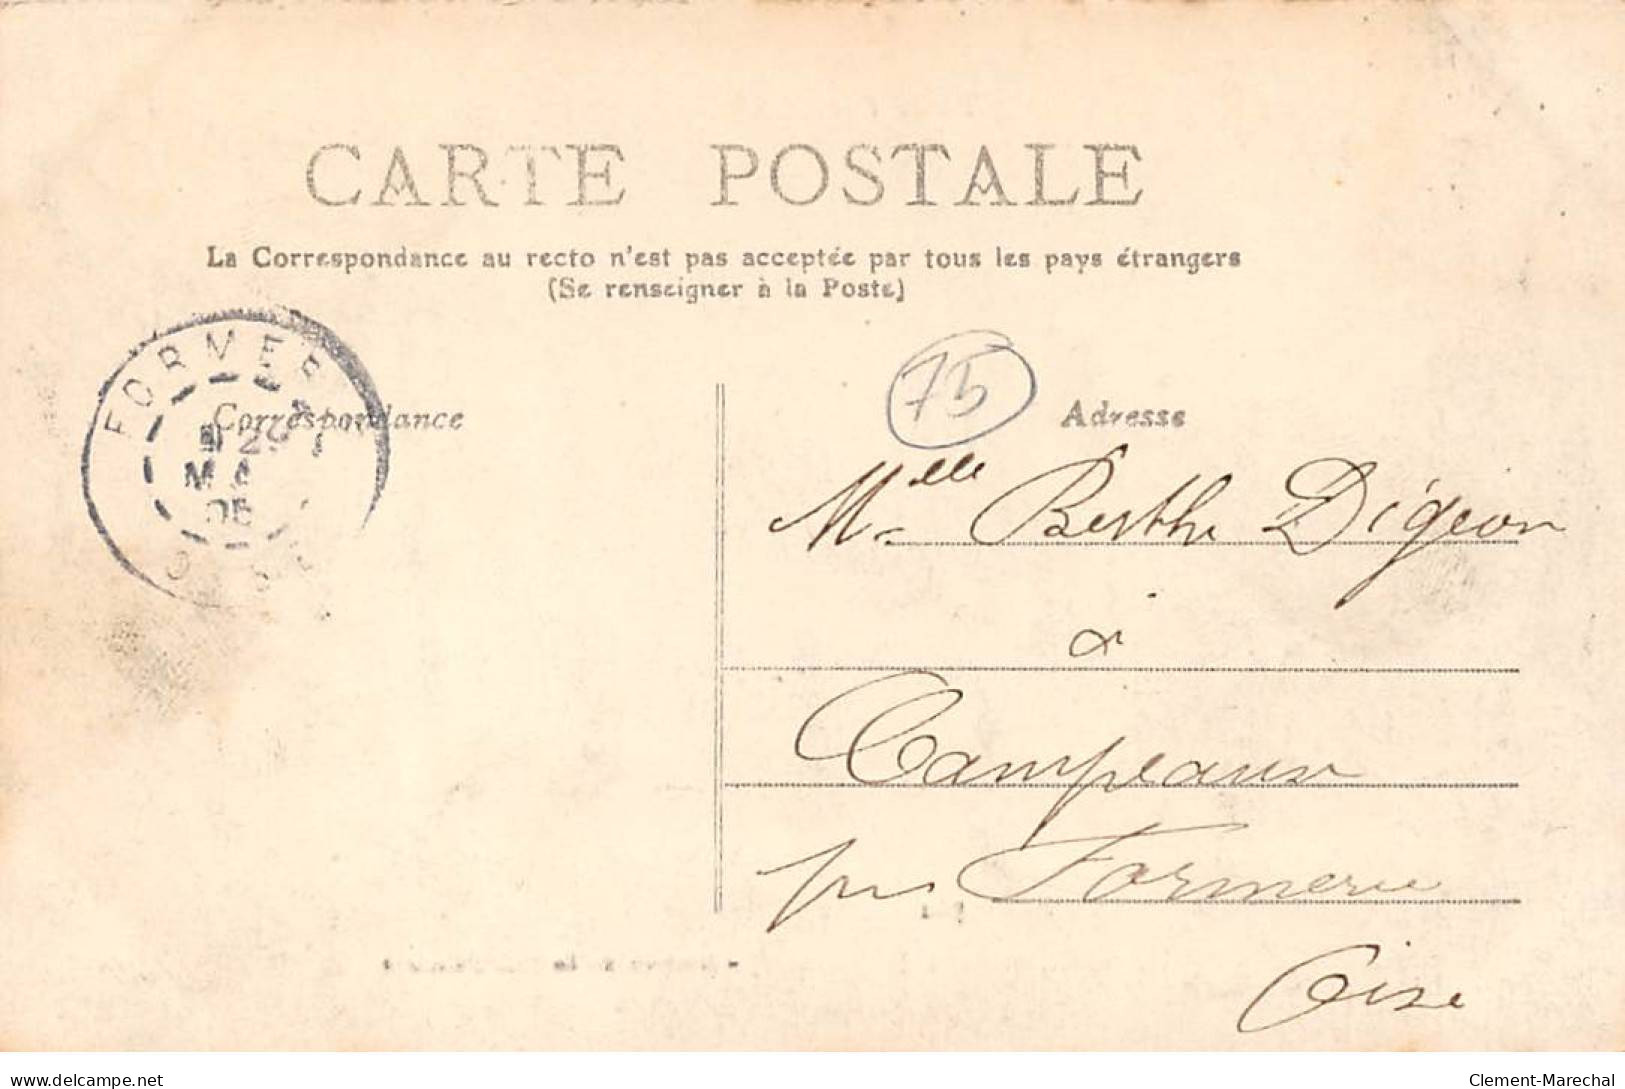 CARTE POSTALE
La Correspondance au recto n'est pas acceptée par tous les pays étrangers
(Se renseigner à la Poste)
FORMER
MA
Correspondance
75
Adresse
Mlle Berthe Digeon
à
Campeaux
par Formerie
Oise
delcampe.net
Clement-Marechal